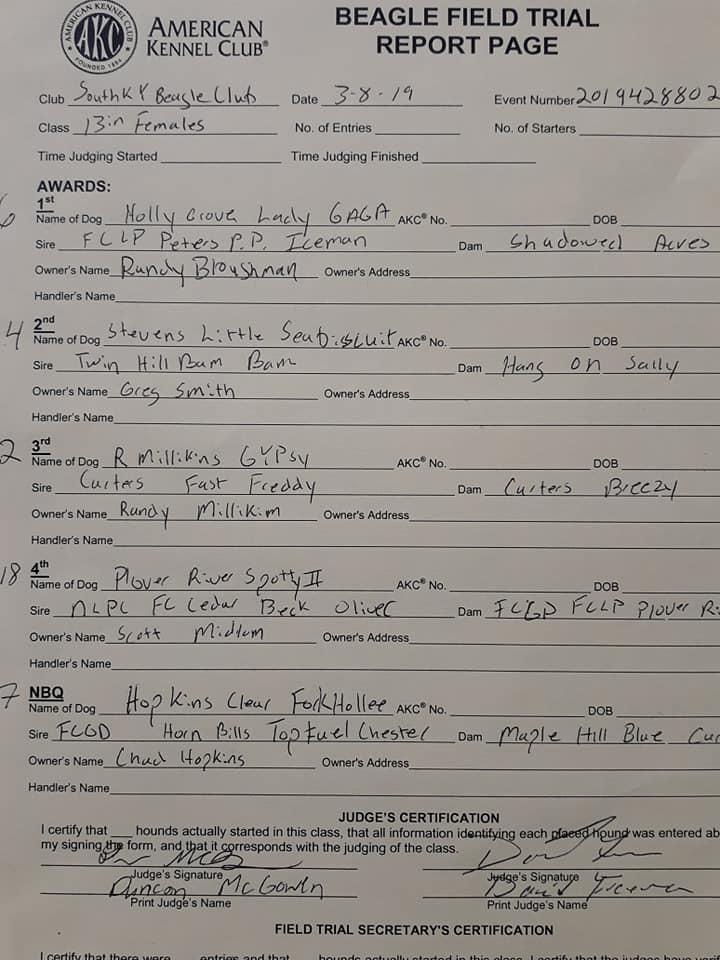 AMERICAN KENNEL CLUB
AKC
FOUNDED 1884
AMERICAN
KENNEL CLUB®
BEAGLE FIELD TRIAL
REPORT PAGE
Club South KY Beagle Club Date 3-8-19 Event Number 2019428802
Class 13in Females No. of Entries No. of Starters
Time Judging Started Time Judging Finished
AWARDS:
1st
6 Name of Dog Holly Grove Lady GAGA AKC® No. DOB
Sire FCLP Peters P.P. Iceman Dam Shadowed Acres
Owner's Name Randy Owner's Address
Handler's Name
4 2nd
Name of Dog Stevens Little Seabisuit AKC® No. DOB
Sire Twin Hill Bam Bam Dam Hang on Sally
Owner's Name Greg Smith Owner's Address
Handler's Name
2 3rd
Name of Dog R Millikins GYPSY AKC® No. DOB
Sire Carters Fast Freddy Dam Carters Breezy
Owner's Name Randy Millikim Owner's Address
Handler's Name
18 4th
Name of Dog Plover River Spotty II AKC® No. DOB
Sire NLPC FC Cedar Beck Oliver Dam FCGD FCLP Plover Ri
Owner's Name Scott Owner's Address
Handler's Name
7 NBQ
Name of Dog Hopkins Clear Fork Hollee AKC® No. DOB
Sire FCGD Horn Bills Top Fuel Chester Dam Maple Hill Blue Cu
Owner's Name Chad Hopkins Owner's Address
Handler's Name
JUDGE'S CERTIFICATION
I certify that ___ hounds actually started in this class, that all information identifying each placed hound was entered ab
my signing the form, and that it corresponds with the judging of the class.
Judge's Signature Judge's Signature
Duncan McGowen
Print Judge's Name Print Judge's Name
FIELD TRIAL SECRETARY'S CERTIFICATION
I certify that there were entries and that hounds actually started in this class. I certify that the judges have